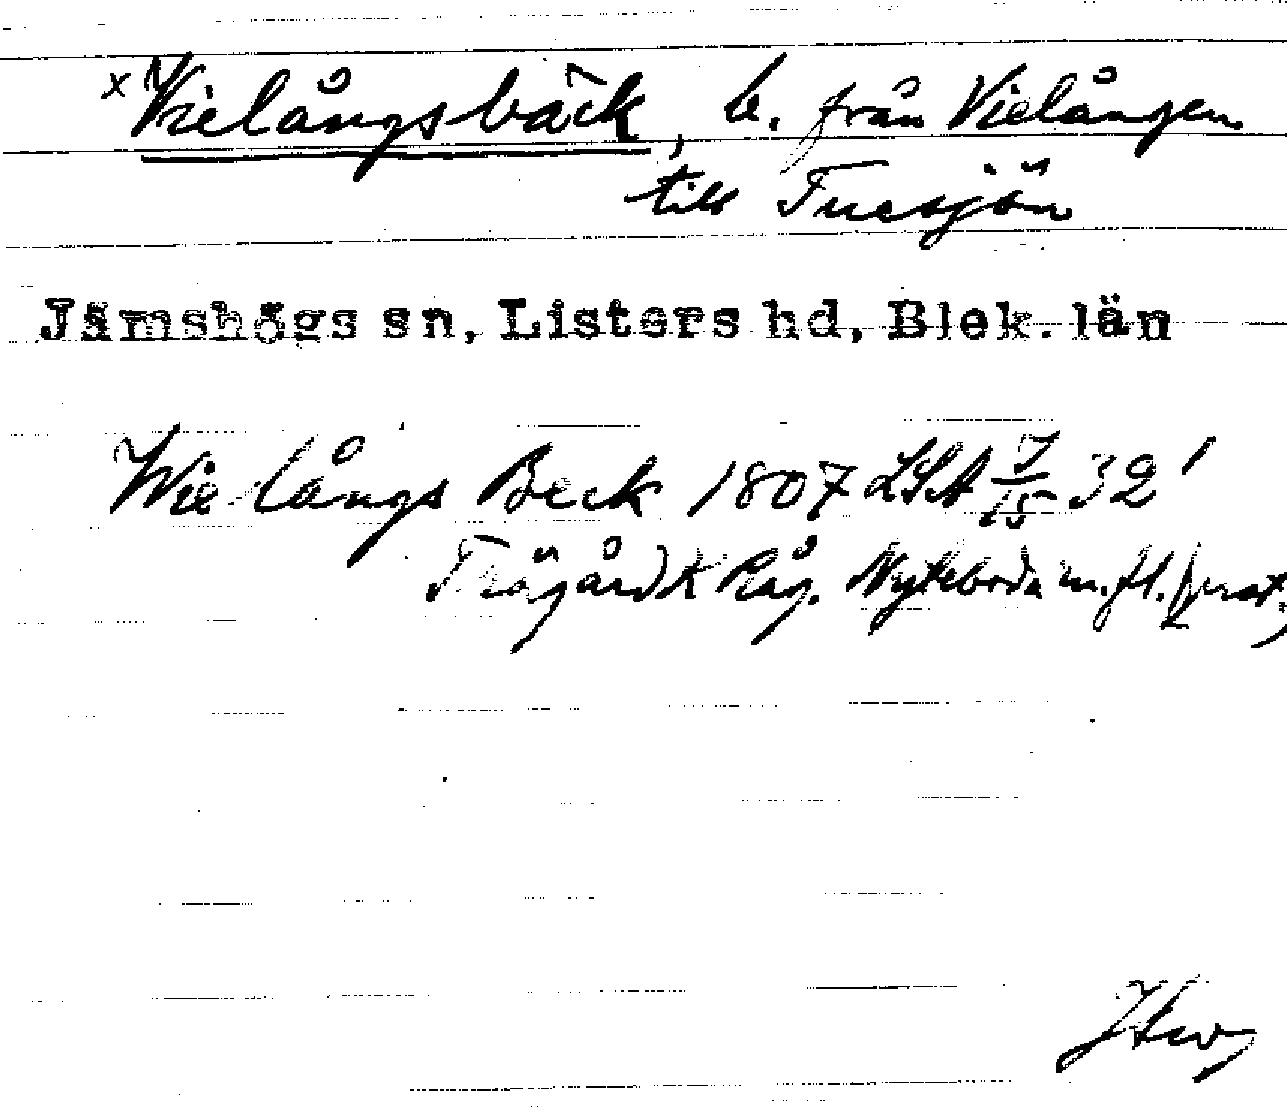 x Vielångsbäck, b. från Vielången
till Tuesjön
Jämshögs sn, Listers hd, Blek. län
Wielångs Beck 1807 LSA 7/15 32'
Råg. Nyteboda m.fl. prot.